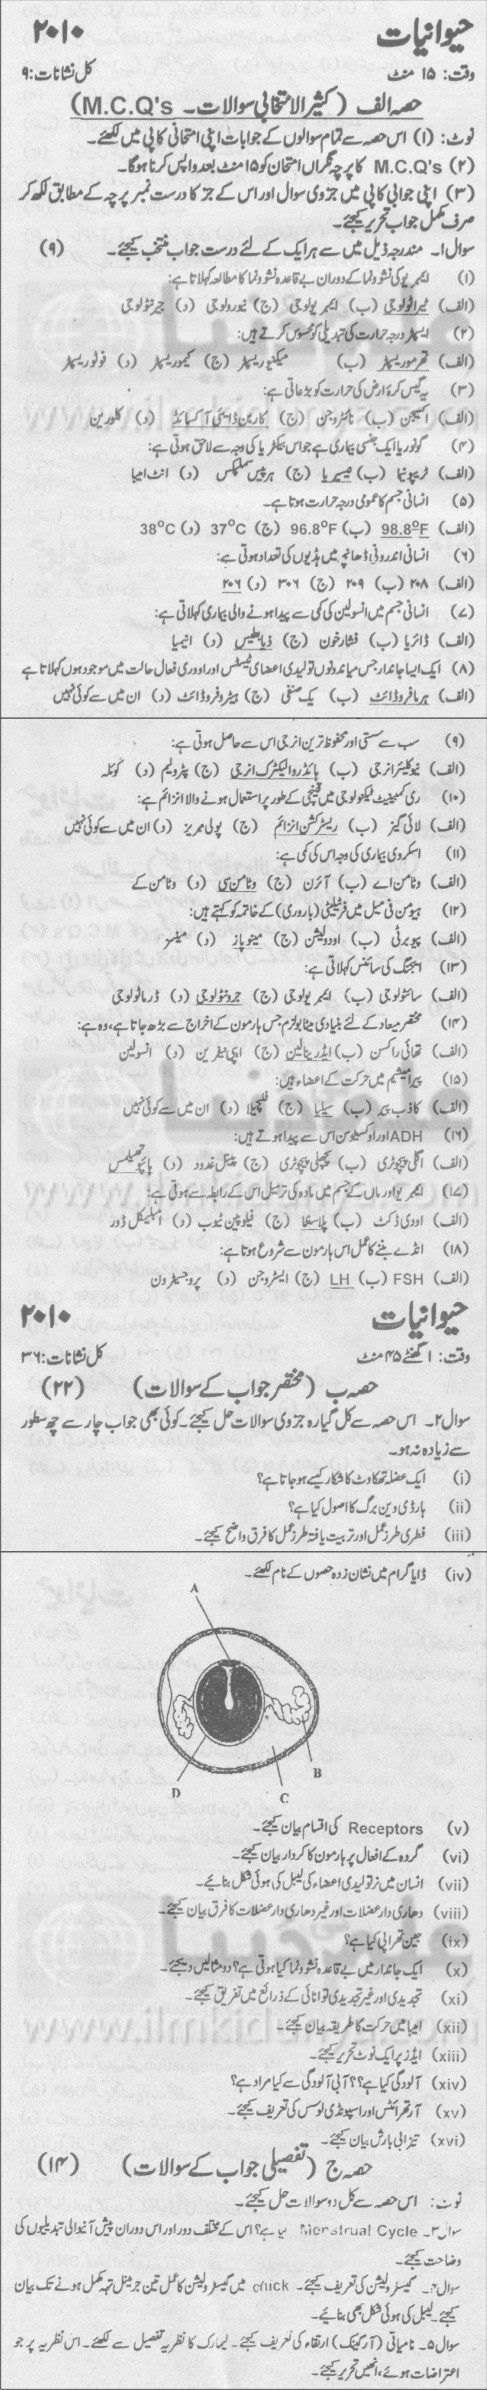 حیوانیات ۲۰۱۰
وقت: ۱۵ منٹ کل نشانات: ۹
حصہ الف (کثیرالانتخابی سوالات۔ M.C.Q's)
نوٹ: (۱) اس حصہ سے تمام سوالوں کے جوابات اپنی امتحانی کاپی میں لکھئے۔
(۲) M.C.Q's کا پرچہ نگراں امتحان کو ۱۵ منٹ بعد واپس کرنا ہوگا۔
(۳) اپنی جوابی کاپی میں جزوی سوال اور اس کے جز کا درست نمبر پرچہ کے مطابق لکھ کر
صرف مکمل جواب تحریر کیجئے۔
سوال ۱۔ مندرجہ ذیل میں سے ہر ایک کے لئے درست جواب منتخب کیجئے۔ (۹)
(۱) ایمبریو کی نشوونما کے دوران بے قاعدہ نشوونما کا مطالعہ کہلاتا ہے:
(الف) ٹیراٹولوجی (ب) ایمبریولوجی (ج) نیورولوجی (د) جیرنٹولوجی
(۲) ایسپٹر درجہ حرارت کی تبدیلی کو محسوس کرتے ہیں:
(الف) تھرموریسپٹر (ب) میکینوریسپٹر (ج) کیموریسپٹر (د) فوٹوریسپٹر
(۳) یہ گیس کرۂ ارض کی حرارت کو بڑھاتی ہے:
(الف) آکسیجن (ب) نائٹروجن (ج) کاربن ڈائی آکسائڈ (د) کلورین
(۴) گونوریا ایک جنسی بیماری ہے جو اس بیکٹریا کی وجہ سے لاحق ہوتی ہے:
(الف) ٹریپونیما (ب) نیسیریا (ج) ہرپیس سمپلکس (د) انٹ امیبا
(۵) انسانی جسم کا عمومی درجہ حرارت ہوتا ہے۔
(الف) 98.8°F (ب) 96.8°F (ج) 37°C (د) 38°C
(۶) انسانی اندرونی ڈھانچہ میں ہڈیوں کی تعداد ہوتی ہے:
(الف) ۲۰۸ (ب) ۲۰۹ (ج) ۳۰۶ (د) ۲۰۶
(۷) انسانی جسم میں انسولین کی کمی سے پیدا ہونے والی بیماری کہلاتی ہے:
(الف) ڈائریا (ب) فشارخون (ج) ذیابیطیس (د) انیمیا
(۸) ایک ایسا جاندار جس میں دونوں تولیدی اعضا یعنی ٹیسٹس اور اووری فعال حالت میں موجود ہوں کہلاتا ہے
(الف) ہرمافروڈائٹ (ب) یک صنفی (ج) ہیٹروفروڈائٹ (د) ان میں سے کوئی نہیں
(۹) سب سے سستی اور محفوظ ترین انرجی اس سے حاصل ہوتی ہے:
(الف) نیوکلیئر انرجی (ب) ہائڈروالیکٹرک انرجی (ج) پٹرولیم (د) کوئلہ
(۱۰) ری کمبینینٹ ٹیکنولوجی میں قینچی کے طور پر استعمال ہونے والا انزائم ہے:
(الف) لائی گیز (ب) ریسٹرکشن انزائم (ج) پولی مریز (د) ان میں سے کوئی نہیں
(۱۱) اسکروی بیماری کی وجہ اس کی کمی ہے:
(الف) وٹامن اے (ب) آئرن (ج) وٹامن سی (د) وٹامن کے
(۱۲) ہیومن فی میل میں فرٹیلیٹی (باروری) کے خاتمہ کو کہتے ہیں:
(الف) پیوبرٹی (ب) اوویولیشن (ج) مینوپاز (د) مینسز
(۱۳) ایجنگ کی سائنس کہلاتی ہے:
(الف) سائٹولوجی (ب) ایمبریولوجی (ج) جرونٹولوجی (د) ڈرماٹولوجی
(۱۴) مختصر میعاد کے لئے بنیادی میٹابولزم جس ہارمون کے اخراج سے بڑھ جاتا ہے، وہ ہے:
(الف) تھائی راکسن (ب) ایڈرینالین (ج) ایپی نیفرین (د) انسولین
(۱۵) پیرامیشیم میں حرکت کے اعضاء ہیں:
(الف) کاذب پیر (ب) سیلیا (ج) فلیجیلا (د) ان میں سے کوئی نہیں
(۱۶) ADH اور اوکسیٹوسن اس سے پیدا ہوتے ہیں:
(الف) اگلی پچوٹری (ب) پچھلی پچوٹری (ج) پینل غدود (د) ہائپوتھیلمس
(۱۷) ایمبریو اور ماں کے جسم میں مادہ کی ترسیل اس کے رابطہ سے ہوتی ہے:
(الف) اووی ڈکٹ (ب) پلاسنٹا (ج) فیلوپین ٹیوب (د) امبلیکل کورڈ
(۱۸) انڈے بننے کا عمل اس ہارمون سے شروع ہوتا ہے:
(الف) FSH (ب) LH (ج) ایسٹروجن (د) پروجیسٹرون
حیوانیات ۲۰۱۰
وقت: ۱ گھنٹے ۴۵ منٹ کل نشانات: ۳۶
حصہ ب (مختصر جواب کے سوالات) (۲۲)
سوال ۲۔ اس حصہ سے کل گیارہ جزوی سوالات حل کیجئے۔ کوئی بھی جواب چار سے چھ سطور
سے زیادہ نہ ہو۔
(i) ایک عضلہ تھکاوٹ کا شکار کیسے ہوجاتا ہے؟
(ii) ہارڈی وین برگ کا اصول کیا ہے؟
(iii) فطری طرز عمل اور تربیت یافتہ طرز عمل کا فرق واضح کیجئے۔
(iv) ڈایاگرام میں نشان زدہ حصوں کے نام لکھئے۔
A
B
D
C
(v) Receptors کی اقسام بیان کیجئے۔
(vi) گردہ کے افعال پر ہارمون کا کردار بیان کیجئے۔
(vii) انسان میں نر تولیدی اعضاء کی لیبل کی ہوئی شکل بنائیے۔
(viii) دھاری دار عضلات اور غیر دھاری دار عضلات کا فرق بیان کیجئے۔
(ix) جین تھراپی کیا ہے؟
(x) ایک جاندار میں بے قاعدہ نشوونما کیا ہوتی ہے؟ دو مثالیں دیجئے۔
(xi) تجدیدی اور غیر تجدیدی توانائی کے ذرائع میں تفریق کیجئے۔
(xii) امیبا میں حرکت کا طریقہ بیان کیجئے۔
(xiii) ایڈز پر ایک نوٹ تحریر کیجئے۔
(xiv) آلودگی کیا ہے؟؟ آبی آلودگی سے کیا مراد ہے؟
(xv) آرتھرائٹس اور اسپونڈی لوسس کی تعریف کیجئے۔
(xvi) تیزابی بارش بیان کیجئے۔
حصہ ج (تفصیلی جواب کے سوالات) (۱۴)
نوٹ: اس حصہ سے کل دو سوالات حل کیجئے۔
سوال ۳۔ Menstrual Cycle کیا ہے؟ اس کے مختلف دور اور اس دوران پیش آنیوالی تبدیلیوں کی
وضاحت کیجئے۔
سوال ۴۔ گیسٹرولیشن کی تعریف کیجئے۔ chick میں گیسٹرولیشن کا عمل تین جرمینل تہہ مکمل ہونے تک بیان
کیجئے۔ لیبل کی ہوئی شکل بھی بنائیے۔
سوال ۵۔ نامیاتی (آرگینک) ارتقاء کی تعریف کیجئے۔ لیمارک کا نظریہ تفصیل سے لکھئے۔ اس نظریہ پر جو
اعتراضات ہوئے، انھیں تحریر کیجئے۔